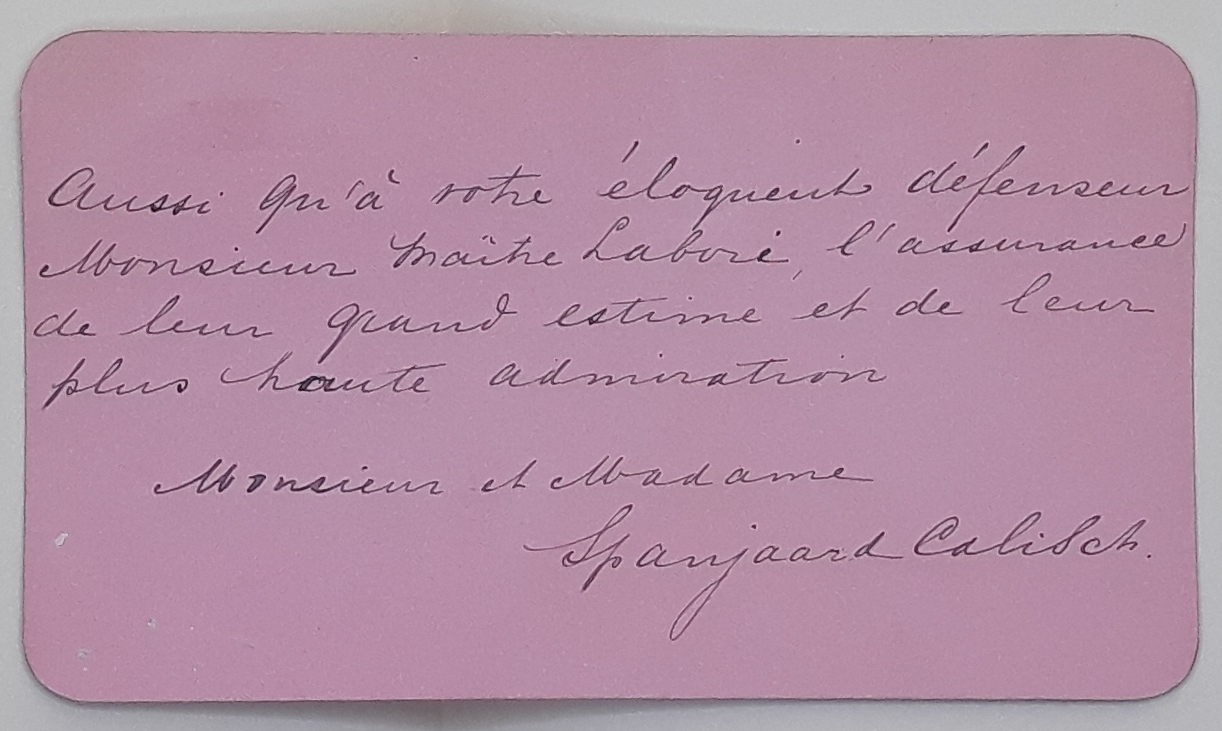 Aussi Qu'à votre éloquent défenseur
Monsieur Maître Labori, l'assurance
de leur grand estime et de leur
plus haute admiration
Monsieur et Madame
Spanjaard Calisch.